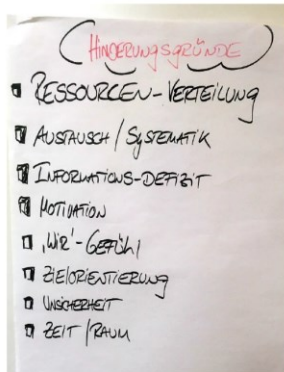 HINDERUNGSGRÜNDE
RESSOURCEN-VERTEILUNG
AUSTAUSCH / SYSTEMATIK
INFORMATIONS-DEFIZIT
MOTIVATION
'WIR'-GEFÜHL
ZIELORIENTIERUNG
UNSICHERHEIT
ZEIT / RAUM